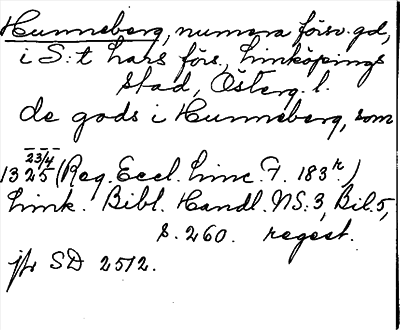 Hunneberg, numera försv. gd,
i S:t Lars förs., Linköpings
stad, Österg. l.
de gods i Hunneberg, som
23/4
1325 (Reg. Eccl. Linc. F. 183r.)
Link. Bibl. Handl. NS: 3, Bil. 5,
s. 260. regest.
jfr SD 2512.